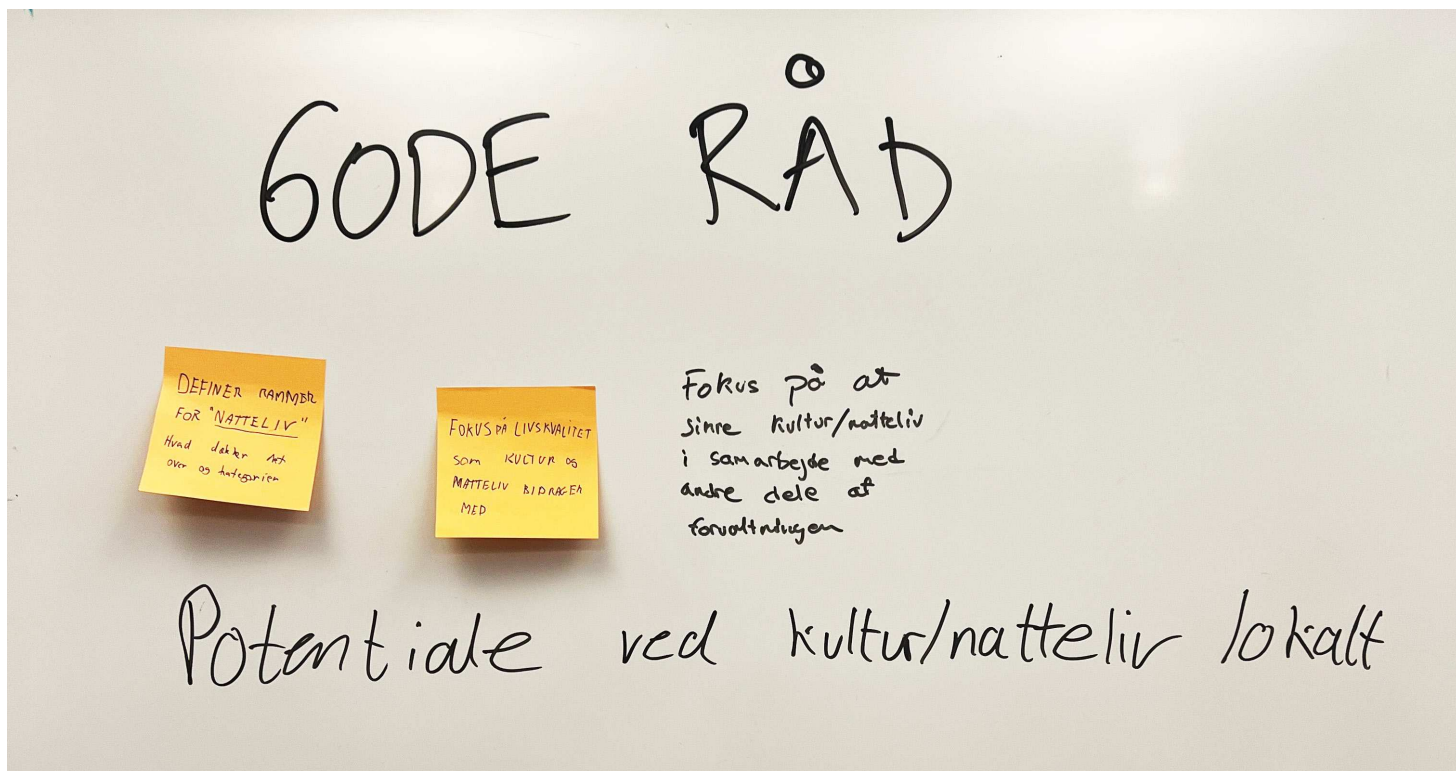 GODE RÅD
DEFINER RAMMER
FOR "NATTELIV"
Hvad dækker det
over og kategorier
FOKUS PÅ LIVSKVALITET
SOM KULTUR OG
NATTELIV BIDRAGER
MED
Fokus på at
sinre kultur/natteliv
i samarbejde med
andre dele af
forvaltningen
Potentiale ved kultur/natteliv lokalt